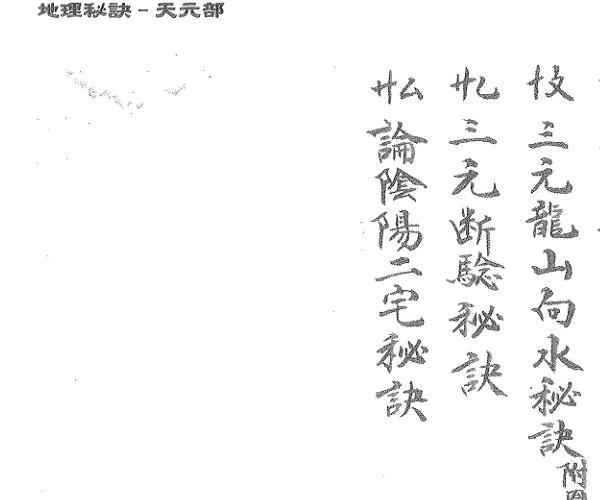 地理秘訣 - 天元部
三元龍山向水秘訣 附
三元断騐秘訣
論陰陽二宅秘訣